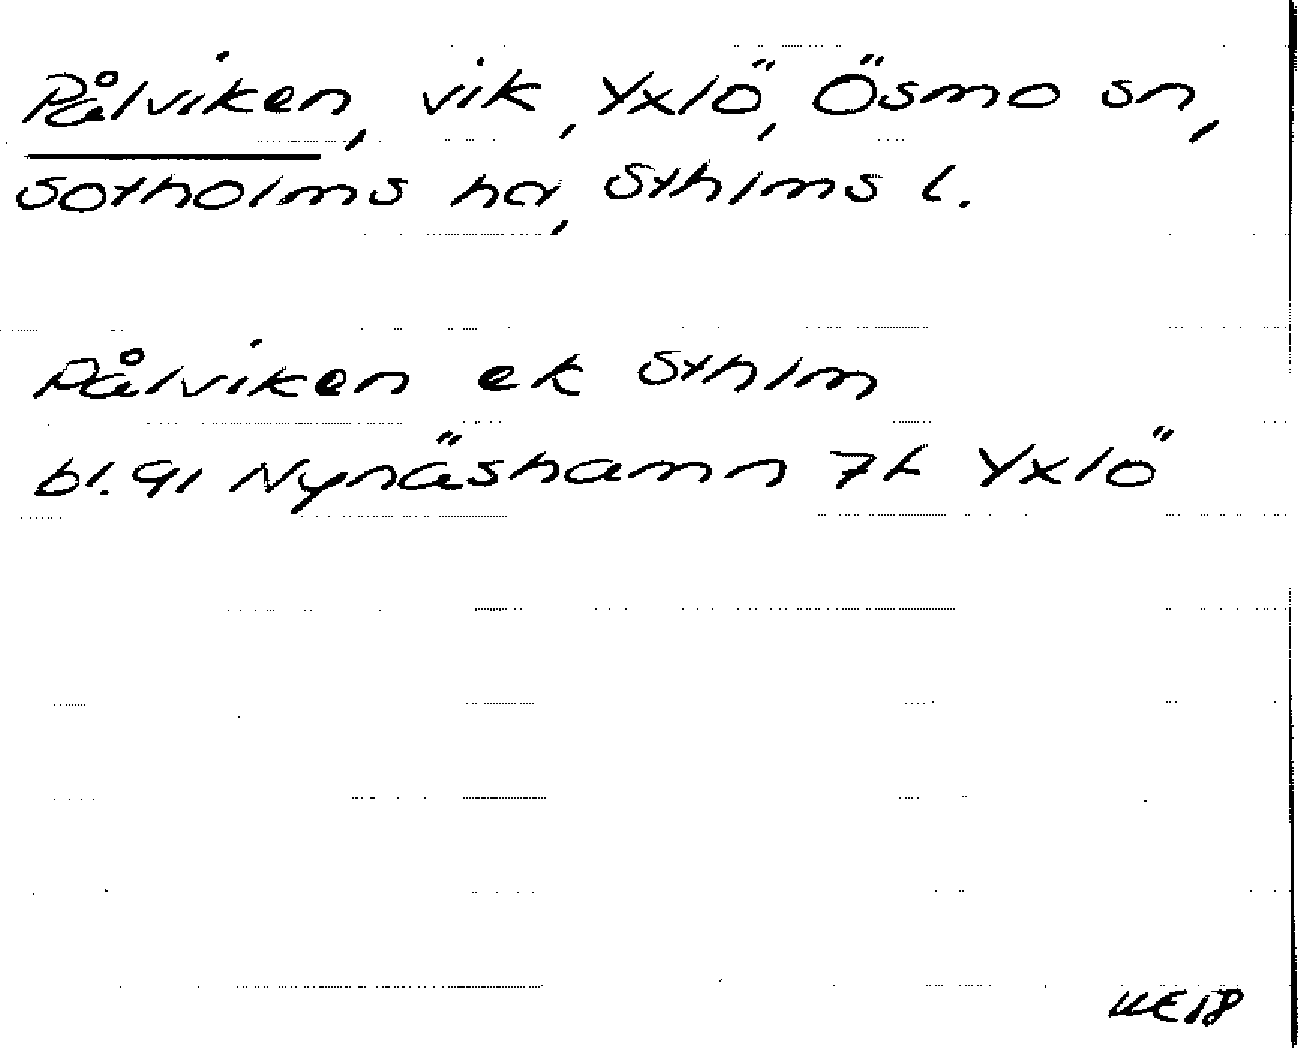 Pålviken, vik, Yxlö, Ösmo sn,
Sotholms hd, Sthlms l.
Pålviken ek Sthlm
bl. 91 Nynäshamn 7h Yxlö